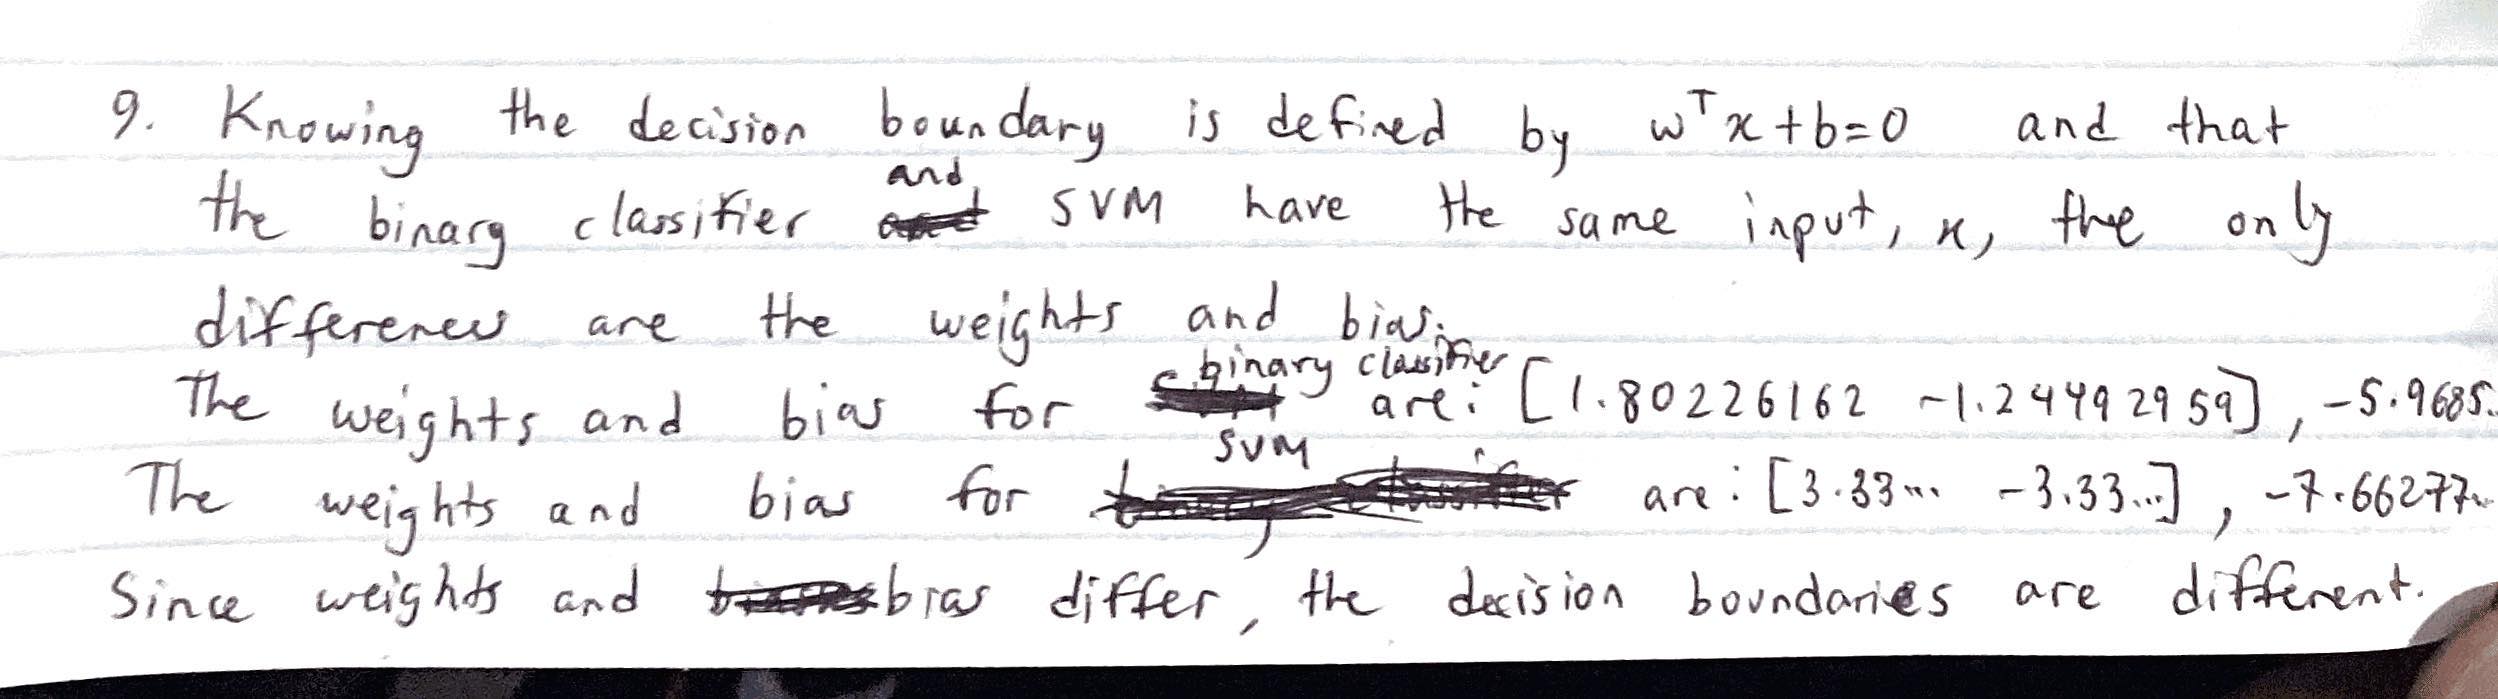 9. Knowing the decision boundary is defined by wᵀx+b=0 and that
the binary classifier and SVM have the same input, x, the only
differences are the weights and bias.
The weights and bias for binary classifier are: [1.80226162 -1.24492959], -5.9685..
The weights and bias for SVM are: [3.33... -3.33...], -7.66277...
Since weights and bias differ, the decision boundaries are different.